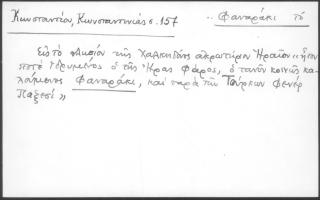 Κωνσταντίου, Κωνσταντινιάς σ. 157
.. Φαναράκι τό
Εἰς τό πλησίον τῆς Χαλκηδόνος ἀκρωτήριον Ἡραῖον "ἦτον
ποτέ ἱδρυμένος ὁ τῆς Ἥρας Φάρος, ὁ τανῦν κοινῶς κα-
λούμενος Φαναράκι, καί παρά τῶν Τούρκων Φενέρ
Παξεσί"